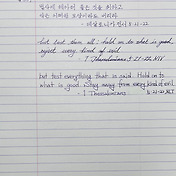 범사에 헤아려 좋은 것을 취하고
악은 어떤 모양이라도 버리라
데살로니가전서 5:21-22
but test them all; hold on to what is good,
reject every kind of evil
- 1 Thessalonians 5:21-22, NIV
but test everything that is said. Hold on to
what is good. Stay away from every kind of evil.
- 1 Thessalonians 5:21-22 NLT